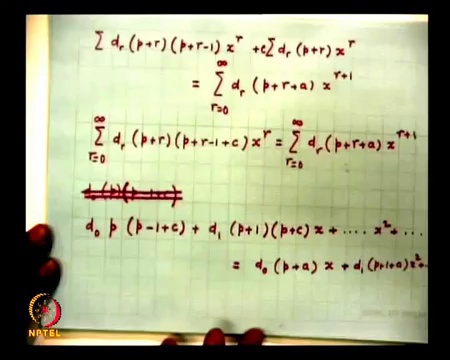 Σ d_r (p+r)(p+r-1) x^r + c Σ d_r (p+r) x^r
= Σ_{r=0}^{∞} d_r (p+r+a) x^{r+1}
Σ_{r=0}^{∞} d_r (p+r)(p+r-1+c) x^r = Σ_{r=0}^{∞} d_r (p+r+a) x^{r+1}
d_0 p (p-1+c) + d_1 (p+1)(p+c) x + .... x^2 + ...
= d_0 (p+a) x + d_1 (p+1+a) x^2 + ..
NPTEL